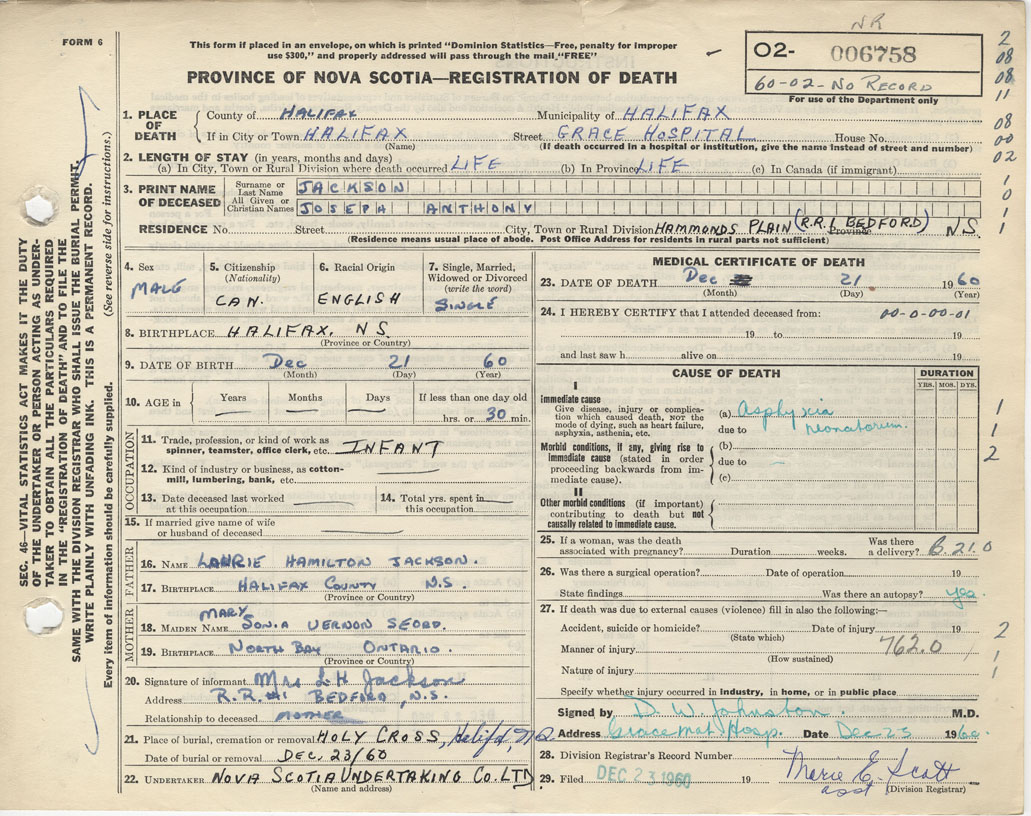 NR
FORM 6
This form if placed in an envelope, on which is printed "Dominion Statistics—Free, penalty for improper
use $300," and properly addressed will pass through the mail "FREE"
PROVINCE OF NOVA SCOTIA—REGISTRATION OF DEATH
O2- 006758
60-02-No Record
For use of the Department only
2
08
08
11
08
00
02
1
0
1
1
1. PLACE OF DEATH
County of HALIFAX Municipality of HALIFAX
If in City or Town HALIFAX Street GRACE HOSPITAL House No.
(Name) (If death occurred in a hospital or institution, give the name instead of street and number)
2. LENGTH OF STAY (in years, months and days)
(a) In City, Town or Rural Division where death occurred LIFE (b) In Province LIFE (c) In Canada (if immigrant)
3. PRINT NAME OF DECEASED
Surname or Last Name JACKSON
All Given or Christian Names JOSEPH ANTHONY
RESIDENCE No. Street City, Town or Rural Division HAMMONDS PLAIN (R.R.1 BEDFORD) Province N S.
(Residence means usual place of abode. Post Office Address for residents in rural parts not sufficient)
4. Sex
MALE
5. Citizenship
(Nationality)
CAN.
6. Racial Origin
ENGLISH
7. Single, Married,
Widowed or Divorced
(write the word)
SINGLE
8. BIRTHPLACE HALIFAX, N S.
(Province or Country)
9. DATE OF BIRTH Dec 21 60
(Month) (Day) (Year)
10. AGE in Years Months Days If less than one day old
hrs. or 30 min.
OCCUPATION
11. Trade, profession, or kind of work as
spinner, teamster, office clerk, etc. INFANT
12. Kind of industry or business, as cotton-
mill, lumbering, bank, etc.
13. Date deceased last worked
at this occupation
14. Total yrs. spent in
this occupation
15. If married give name of wife
or husband of deceased
FATHER
16. NAME LAURIE HAMILTON JACKSON.
17. BIRTHPLACE HALIFAX COUNTY N.S.
(Province or Country)
MOTHER
MARY
18. MAIDEN NAME SONIA VERNON SEORD.
19. BIRTHPLACE NORTH BAY ONTARIO.
(Province or Country)
20. Signature of informant Mrs L H Jackson
Address R.R. #1 BEDFORD, N.S.
Relationship to deceased MOTHER
21. Place of burial, cremation or removal HOLY CROSS,
Date of burial or removal DEC. 23/60
22. UNDERTAKER NOVA SCOTIA UNDERTAKING CO. LTD
(Name and address)
MEDICAL CERTIFICATE OF DEATH
23. DATE OF DEATH Dec 21 1960
(Month) (Day) (Year)
24. I HEREBY CERTIFY that I attended deceased from: 00-0-00-01
19 to 19
and last saw h alive on 19
CAUSE OF DEATH DURATION
YRS. MOS. DYS.
I
Immediate cause
Give disease, injury or complica-
tion which caused death, NOT the
mode of dying, such as heart failure,
asphyxia, asthenia, etc.
(a) Asphyxia
due to neonatorum.
Morbid conditions, if any, giving rise to
immediate cause (stated in order
proceeding backwards from im-
mediate cause).
(b)
due to
(c)
II
Other morbid conditions (if important)
contributing to death but not
causally related to immediate cause.
1
1
2
25. If a woman, was the death
associated with pregnancy? Duration weeks. Was there
a delivery? B.21.0
26. Was there a surgical operation? Date of operation 19
State findings Was there an autopsy? yes.
27. If death was due to external causes (violence) fill in also the following:—
Accident, suicide or homicide? Date of injury 19
(State which)
Manner of injury 762.0
(How sustained)
Nature of injury
Specify whether injury occurred in industry, in home, or in public place
2
1
1
Signed by D. W. Johnston. M.D.
Address Grace Mat. Hosp. Date Dec 23 1960
28. Division Registrar's Record Number
29. Filed DEC 23 1960 19 Marie E. Scott
asst (Division Registrar)
SEC. 46—VITAL STATISTICS ACT MAKES IT THE DUTY
OF THE UNDERTAKER OR PERSON ACTING AS UNDER-
TAKER TO OBTAIN ALL THE PARTICULARS REQUIRED
IN THE "REGISTRATION OF DEATH" AND TO FILE THE
SAME WITH THE DIVISION REGISTRAR WHO SHALL ISSUE THE BURIAL PERMIT.
WRITE PLAINLY WITH UNFADING INK. THIS IS A PERMANENT RECORD.
Every item of information should be carefully supplied. (See reverse side for instructions.)